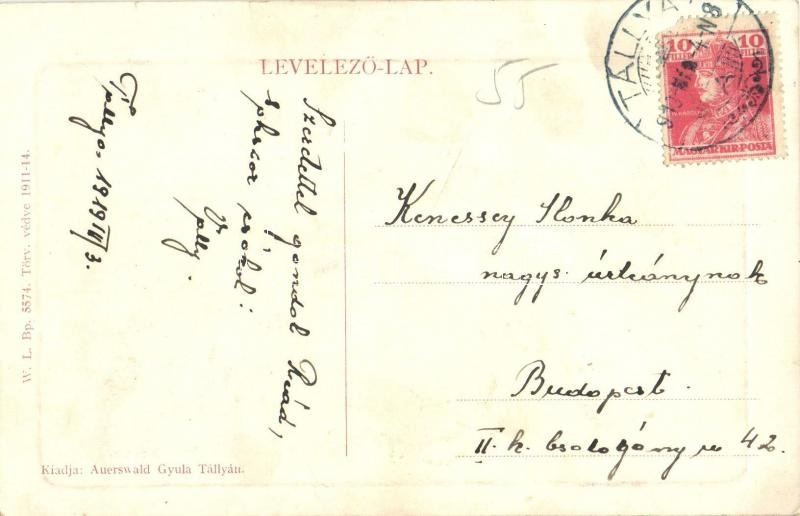 LEVELEZŐ-LAP.
55
TÁLLYA
10 10
MAGYAR KIR. POSTA
Szeretettel gondol Reád,
s csókol:
Tállya 1919 III/3.
Kenessey Ilonka
nagys. úrleánynak
Budapest.
II. k. Csalogány u 42.
W. L. Bp. 5574. Törv. védve 1911-14.
Kiadja: Auerswald Gyula Tállyán.